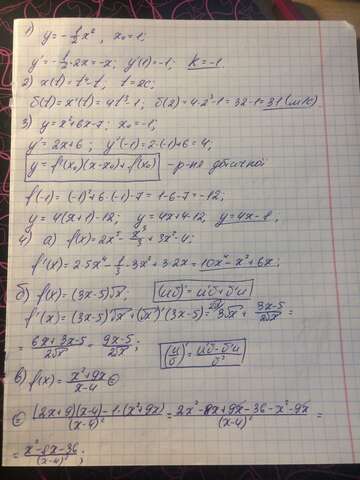 1) y = -1/2 x², x₀ = 1;
y' = -1/2 · 2x = -x; y'(1) = -1; k = -1
2) x(t) = t⁴ - t, t = 2c;
v(t) = x'(t) = 4t³ - 1; v(2) = 4·2³ - 1 = 32 - 1 = 31 (м/с)
3) y = x² + 6x - 7; x₀ = -1;
y' = 2x + 6; y'(-1) = 2·(-1) + 6 = 4;
y = f'(x₀)(x - x₀) + f(x₀) - р-не дотичної
f(-1) = (-1)² + 6·(-1) - 7 = 1 - 6 - 7 = -12;
y = 4(x + 1) - 12; y = 4x + 4 - 12; y = 4x - 8;
4) a) f(x) = 2x⁵ - x³/3 + 3x² - 4;
f'(x) = 2·5x⁴ - 1/3 · 3x² + 3·2x = 10x⁴ - x² + 6x;
б) f(x) = (3x - 5)√x; (uv)' = u'v + v'u
f'(x) = (3x - 5)'√x + (√x)'(3x - 5) = 3√x + (3x - 5)/2√x =
= (6x + 3x - 5)/2√x = (9x - 5)/2√x; (u/v)' = (u'v - v'u)/v²
в) f(x) = (x² + 9x)/(x - 4) =
= [(2x + 9)(x - 4) - 1·(x² + 9x)]/(x - 4)² = (2x² - 8x + 9x - 36 - x² - 9x)/(x - 4)² =
= (x² - 8x - 36)/(x - 4)²;